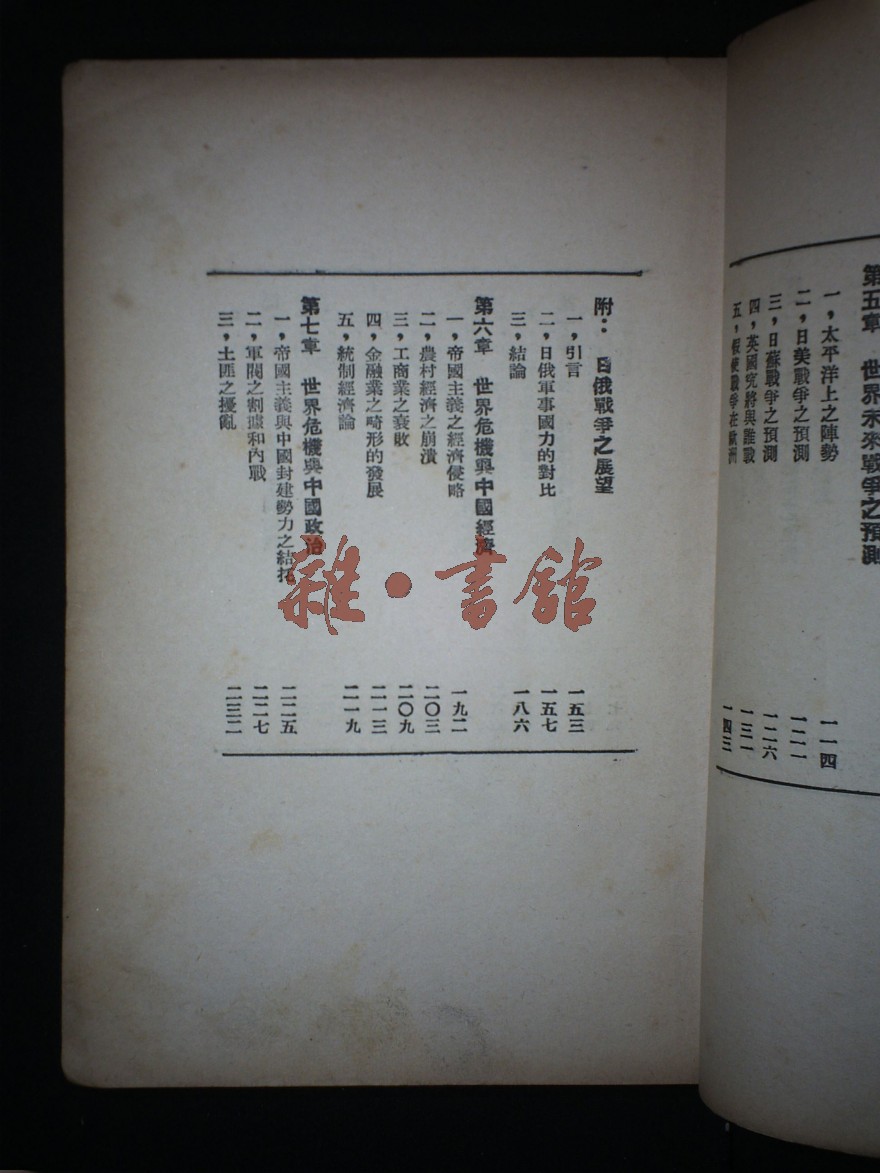 第五章　世界未來戰爭之預測
一，太平洋上之陣勢　一一四
二，日美戰爭之預測　一二一
三，日蘇戰爭之預測　一二六
四，英國究將與誰戰　一三一
五，假使戰爭在歐洲　一四三
附：　日俄戰爭之展望
一，引言　一五三
二，日俄軍事國力的對比　一五七
三，結論　一八六
第六章　世界危機與中國經濟
一，帝國主義之經濟侵略　一九二
二，農村經濟之崩潰　二〇三
三，工商業之衰敗　二〇九
四，金融業之畸形的發展　二一三
五，統制經濟論　二一九
第七章　世界危機與中國政治
一，帝國主義與中國封建勢力之結托　二二五
二，軍閥之割據和內戰　二二七
三，土匪之擾亂　二三二
雜·書館